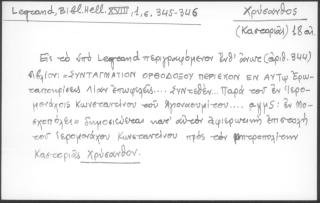 Legrand, Bibl. Hell. XVIII, 1, σ. 345-346
Χρύσανθος
(Καστοριᾶς) 18 αἰ.
Εἰς τὸ ὑπὸ Legrand περιγραφόμενον ἐνθ' ἀνωτ. (ἀριθ. 344)
βιβλίον: «ΣΥΝΤΑΓΜΑΤΙΟΝ ΟΡΘΟΔΟΞΟΝ ΠΕΡΙΕΧΟΝ ΕΝ ΑΥΤῷ Ἐρω-
ταποκρίσεις λίαν ἐπωφελεῖς.... ΣΥΝΤΕΘΕΝ... Παρὰ τοῦ ἐν Ἱερο-
μονάχοις Κωνσταντίνου τοῦ Ἁγιοναουμίτου.... αψμς: ἐν Μο-
σχοπόλει» δημοσιεύεται κατ' αὐτὸν ἀφιερωτικὴ ἐπιστολὴ
τοῦ Ἱερομονάχου Κωνσταντίνου πρὸς τὸν μητροπολίτην
Καστοριᾶς Χρύσανθον.